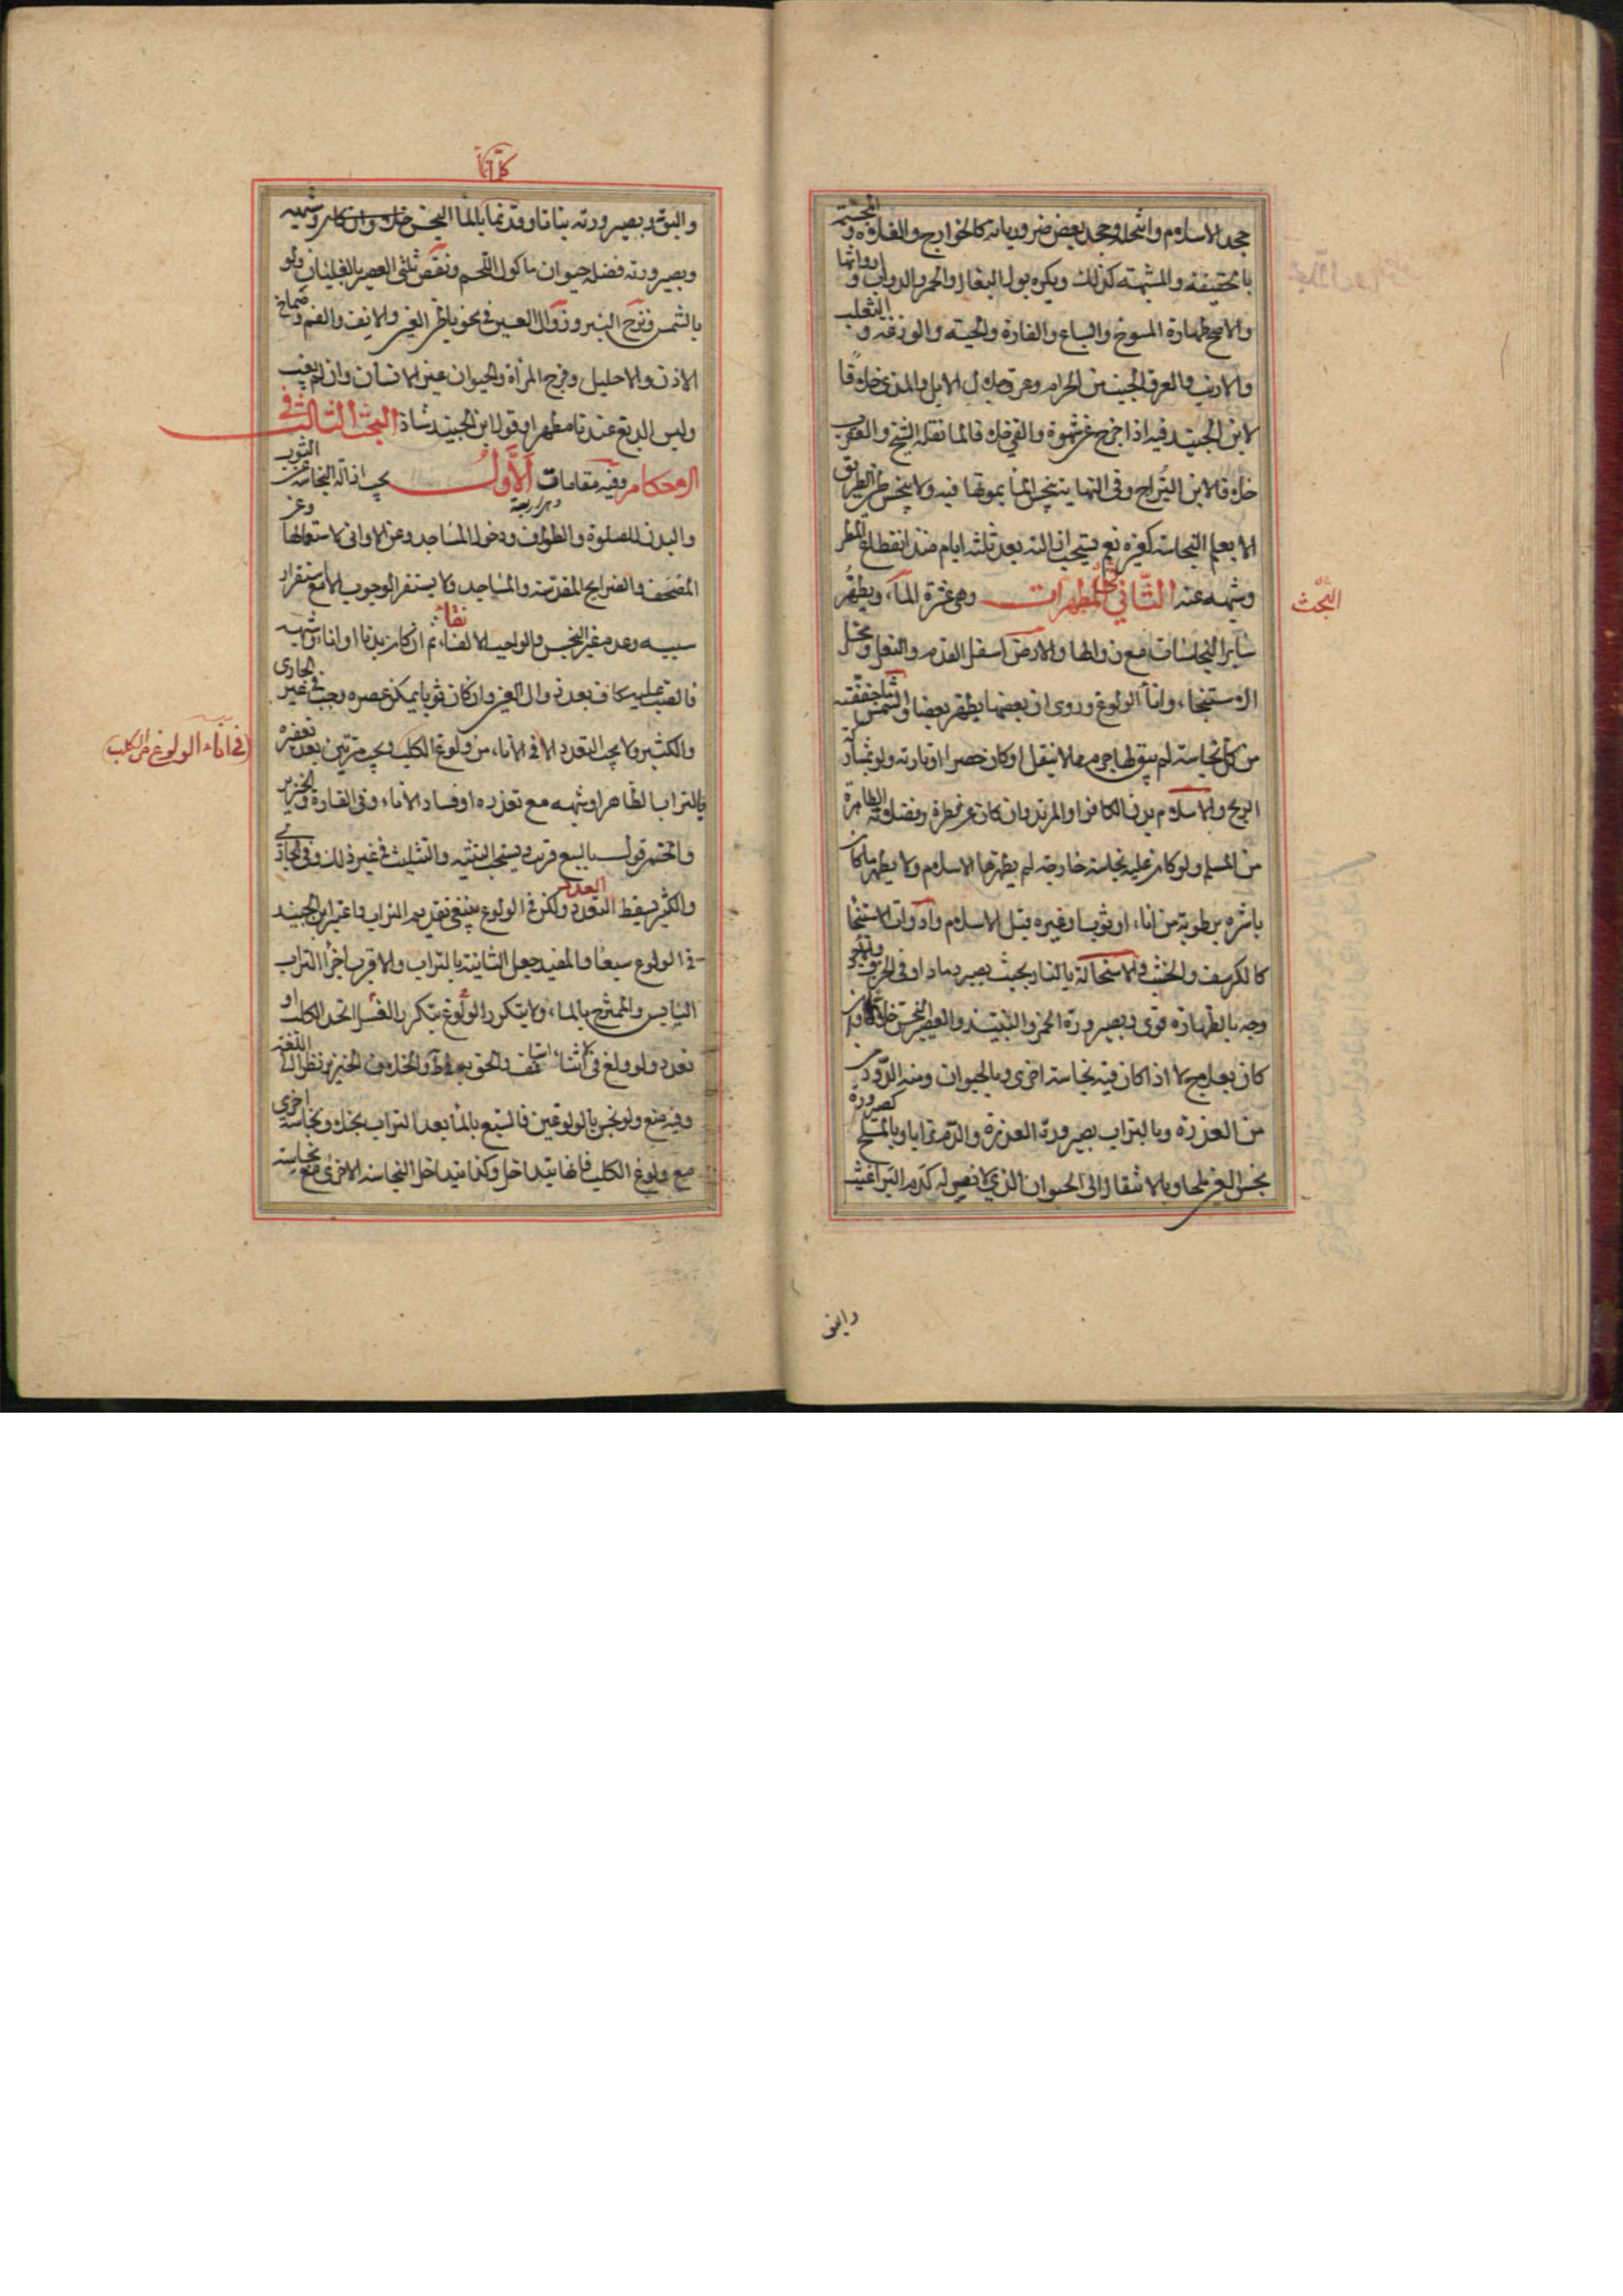 جحد الاسلام وانتحله وجحد بعض ضرورياته كالخوارج والغلاة و المجسمة
بالحقيقة والمشبهة كذلك ويكره بول البغال والحمر والدواب و ارواثها
والاصح طهارة المسوخ والسباع والفارة والحية والوزغة و الثعلب
والارنب والعرق الجنب من الحرام وعرق جلال الابل والمذي خلافا
لابن الجنيد فيه اذا خرج عن شهوة والقي خلافا لما نقله الشيخ والعقرب
خلافا لابن البراج وفي النهاية ينجس الماء بموتها فيه ولا ينجس طين الطريق
الا بعلم النجاسة كغيره نعم يستحب ازالته بعد ثلثة ايام منذ انقطاع المطر
وشبهه عنه الثاني في المطهرات وهي عشرة الماء ويطهر
البحث
ساير النجاسات مع زوالها والارض اسفل القدم والنعل ومحل
الاستنجاء واناء الولوغ وروى ان بعضها يطهر بعضا والشمس ما جففته
من كل نجاسة لم يبق لها جرم مما لا ينقل او كان حصرا او بارية ولو بمشاركة
الريح والاسلام بدن الكافر او المرتد وان كان عن فطرة وفضلاته الطاهرة
من المسلم ولو كان عليه نجاسة خارجة لم يطهرها الاسلام ولا يطهر ما كان
باشره برطوبة من اناء او ثوب او غيره قبل الاسلام وادوات الاستنجا
كالكرسف والخشب والاستحالة بالنار بحيث يصير رمادا وفي الخزف والآجر
وجه بالطهارة قوى وبصيرورة الخمر والنبيذ والعصير النجس خلا وان
كان بعلاج لا اذا كان فيه نجاسة اخرى وبالحيوان ومنه الدود
من العذرة وبالتراب بصيرورة العذرة والدم ترابا وبالملح كصيرورة
نجس العين ملحا وبالانتقال الى الحيوان الذي لا نفس له كدم البراغيث
والبق
كالترابا
والبق وبصيرورته نباتا وقد نما بالماء النجس
وبصيرورته فضلة حيوان ماكول اللحم ونقص ثلثى العصير بالغليان ولو
بالشمس ونزح البئر وزوال العين في نحو باطن العين والانف والفم و صماخ
الاذن والاحليل وفرج المرأة والحيوان غير الانسان وان لم يغب
وليس الدبغ عندنا مطهرا وقول ابن الجنيد شاذ البحث الثالث في
الاحكام وفيه مقامات اربعة الاول يجب ازالة النجاسة عن الثوب
والبدن للصلوة والطواف ودخول المساجد وعن الاواني لاستعمالها وعن
المصحف والضرايح المقدسة والمساجد ولا يستقر الوجوب الا مع استقرار
سببه وعدم غير النجس والواجب الانقاء ثم ان كان بدنا او اناء وشبهه
فالصب عليه كاف بعد زوال العين وان كان ثوبا يمكن عصره وجب في غير الجارى
والكثير ولا يجب التعدد الا في الاناء من ولوغ الكلب ويجب مرتين بعد تعفيره
في اناء الولوغ من الكلب
بالتراب الطاهر او شبهه مع تعذره او فساد الاناء وفي الفارة والخنزير
والخمر قول بالسبع قريب ويستحب التثنية والتثليث في غير ذلك وفي الجاري
والكثير يسقط التعدد العدد ولكن في الولوغ ينبغي تقديم التراب واعتبر ابن الجنيد
في الولوغ سبعا والمفيد جعل الثانية بالتراب والاقرب اجزا التراب
اليابس والممتزج بالماء ولا يتكرر الولوغ بتكرر الغسل اتحد الكلب او
تعدد ولو ولغ في اثنا استانف والحق به في الخلاف الخنزير نظرا الى اللغة
وفيه منع ولو نجس بالولوغين فالسبع بالماء بعد التراب بخلاف نجاسة اخرى
مع ولوغ الكلب فانها يتداخل وكذا يتداخل النجاسة الاخرى مع نجاسة